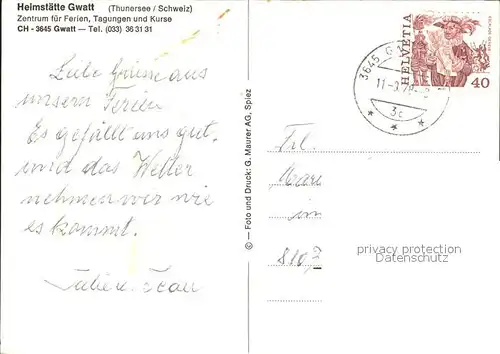 Heimstätte Gwatt (Thunersee / Schweiz)
Zentrum für Ferien, Tagungen und Kurse
CH - 3645 Gwatt — Tel. (033) 36 31 31
Liebe Grüsse aus
unsern Ferien
Es gefällt uns gut
und das Wetter
nehmen wir wie
es kommt.
© — Foto und Druck: G. Maurer AG, Spiez
3645 G
3c
HELVETIA
40
Frl.
in
privacy protection
watermark